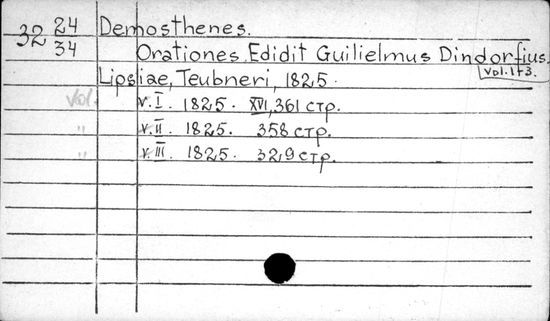 32 24/34 Demosthenes.
Orationes. Edidit Guilielmus Dindorfius.
Vol. 1-3.
Lipsiae, Teubneri, 1825.
Vol. v. I. 1825. XVI, 361 стр.
" v. II. 1825. 358 стр.
" v. III. 1825. 329 стр.